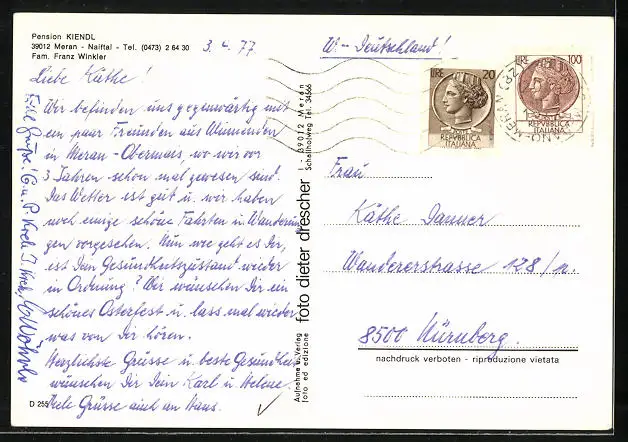 Pension KIENDL
39012 Meran - Naiftal - Tel. (0473) 2 64 30
Fam. Franz Winkler
3. 4. 77
W-Deutschland!
LIRE 20
REPVBBLICA
ITALIANA
LIRE 100
REPVBBLICA
ITALIANA
MERAN
Liebe Käthe!
Wir befinden uns gegenwärtig mit
ein paar Freunden aus
in Meran-Obermais, wo wir vor
3 Jahren schon mal gewesen sind.
Das Wetter ist gut u. wir haben
noch einige schöne Fahrten u. Wanderun
gen vorgesehen. Nun wie geht es Dir,
ist Dein Gesundheitszustand wieder
in Ordnung? Wir wünschen Dir ein
schönes Osterfest u. lass mal wieder
was von Dir hören.
Herzlichste Grüsse u. beste Gesundheit
wünschen Dir Dein Karl u. Helene.
Viele Grüsse auch an Hans.
D 255
Aufnahme u. Verlag
foto ed edizione
foto dieter drescher
I - 39012 Meran
Schallhofweg Tel. 34566
Frau
Käthe Danner
Wandererstrasse 128/n.
8500 Nürnberg.
nachdruck verboten - riproduzione vietata